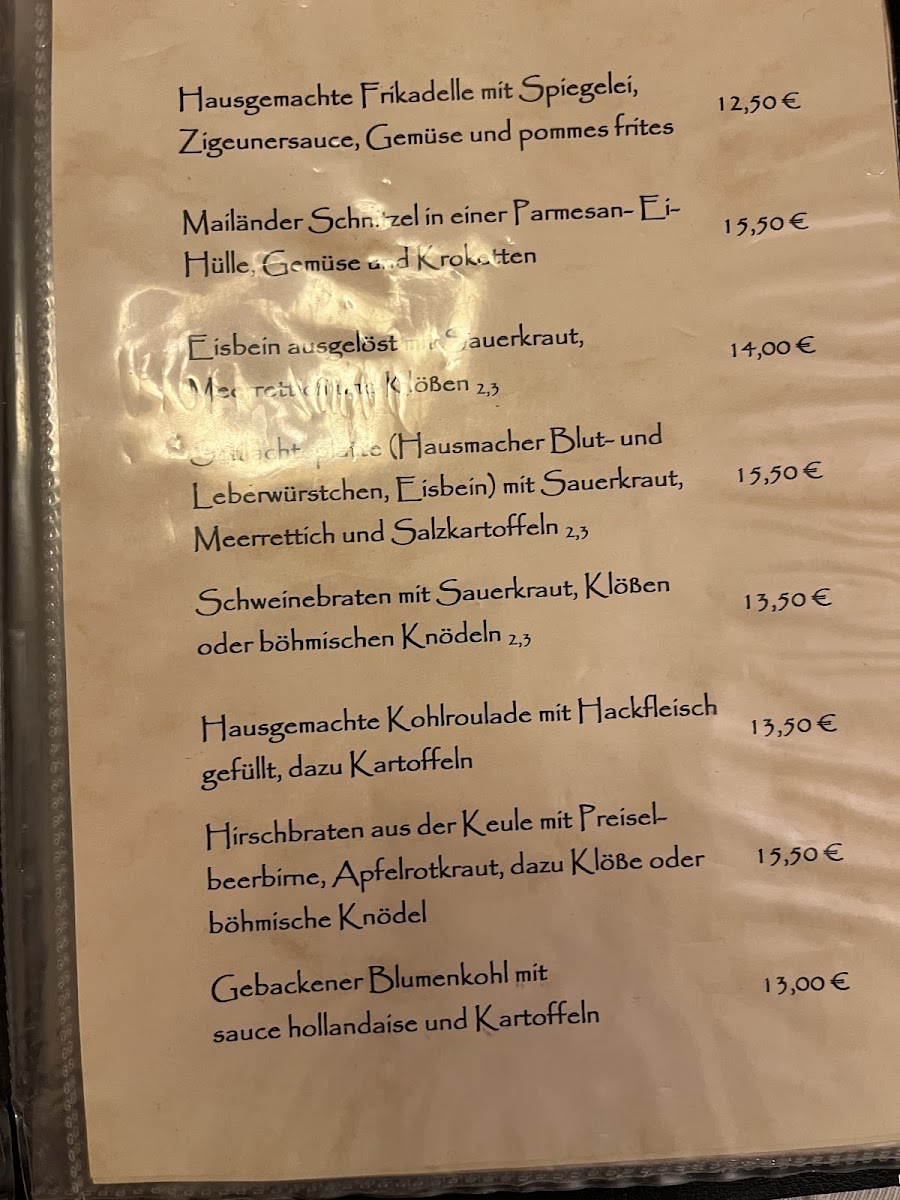 Hausgemachte Frikadelle mit Spiegelei, 12,50 €
Zigeunersauce, Gemüse und pommes frites
Mailänder Schnitzel in einer Parmesan- Ei- 15,50 €
Hülle, Gemüse und Kroketten
Eisbein ausgelöst mit Sauerkraut, 14,00 €
Meerrettich und Klößen 2,3
(Hausmacher Blut- und
Leberwürstchen, Eisbein) mit Sauerkraut, 15,50 €
Meerrettich und Salzkartoffeln 2,3
Schweinebraten mit Sauerkraut, Klößen 13,50 €
oder böhmischen Knödeln 2,3
Hausgemachte Kohlroulade mit Hackfleisch 13,50 €
gefüllt, dazu Kartoffeln
Hirschbraten aus der Keule mit Preisel-
beerbirne, Apfelrotkraut, dazu Klöße oder 15,50 €
böhmische Knödel
Gebackener Blumenkohl mit 13,00 €
sauce hollandaise und Kartoffeln